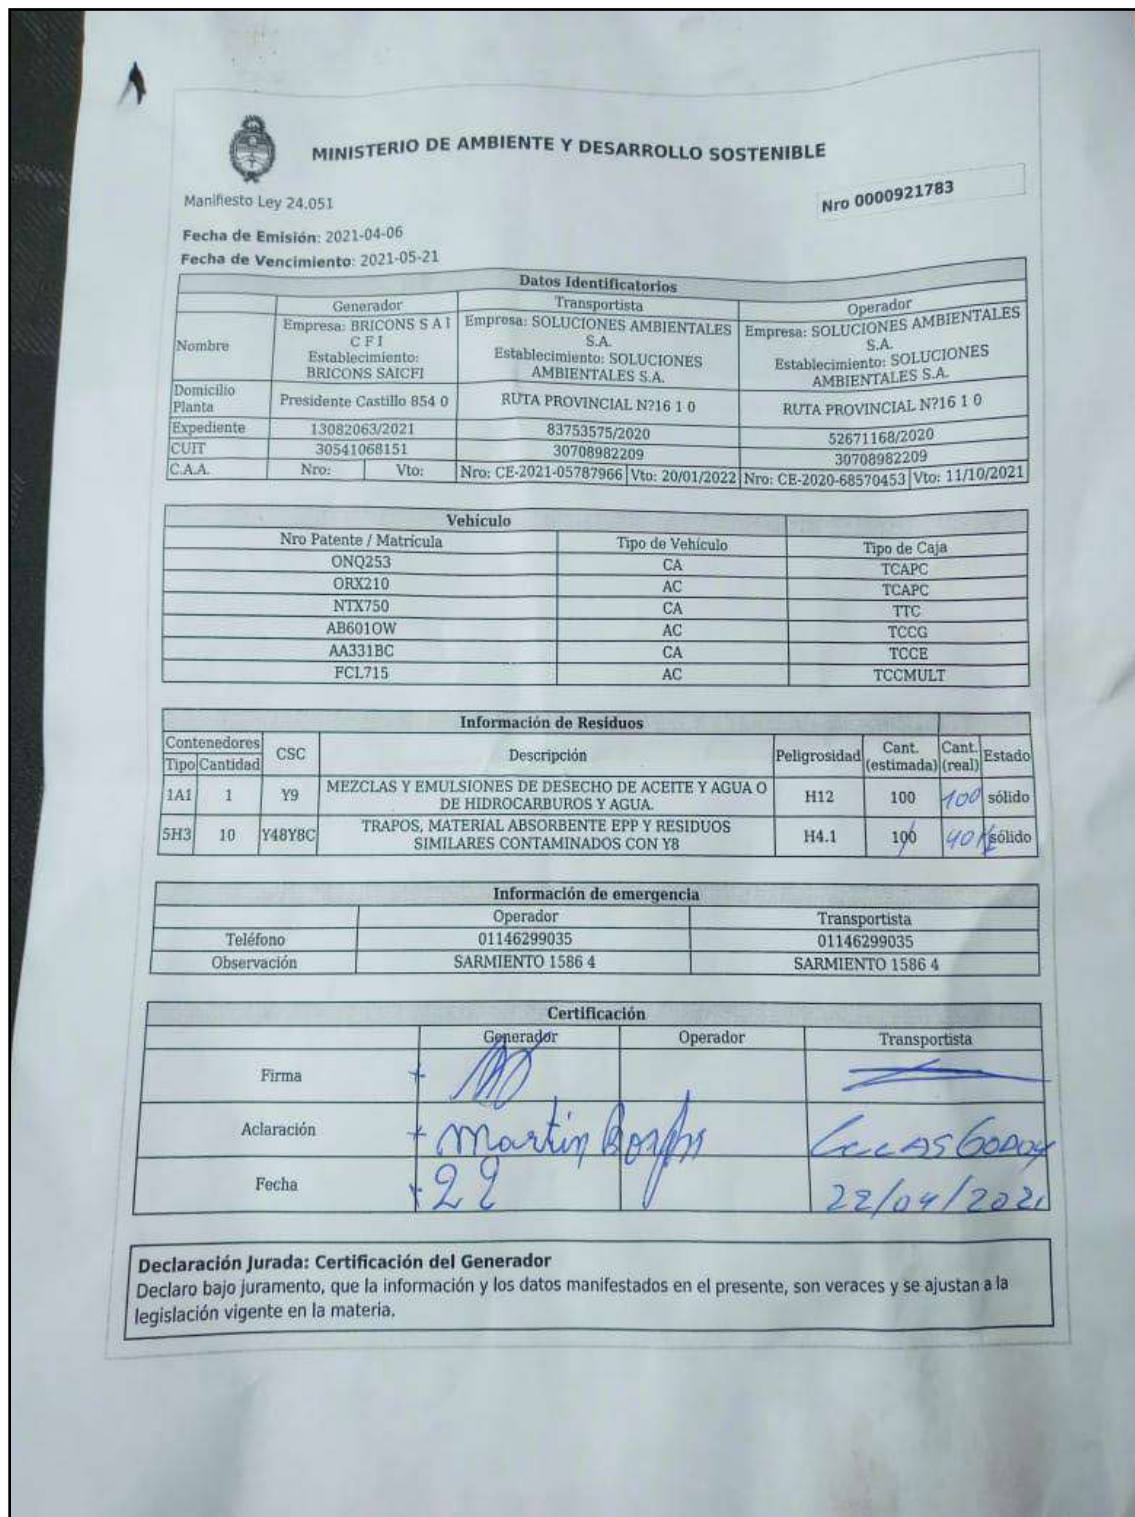 MINISTERIO DE AMBIENTE Y DESARROLLO SOSTENIBLE
Manifiesto Ley 24.051
Nro 0000921783
Fecha de Emisión: 2021-04-06
Fecha de Vencimiento: 2021-05-21
Datos Identificatorios
Generador Transportista Operador
Nombre
Empresa: BRICONS S A I
C F I
Establecimiento:
BRICONS SAICFI
Empresa: SOLUCIONES AMBIENTALES
S.A.
Establecimiento: SOLUCIONES
AMBIENTALES S.A.
Empresa: SOLUCIONES AMBIENTALES
S.A.
Establecimiento: SOLUCIONES
AMBIENTALES S.A.
Domicilio
Planta
Presidente Castillo 854 0 RUTA PROVINCIAL N?16 1 0 RUTA PROVINCIAL N?16 1 0
Expediente 13082063/2021 83753575/2020 52671168/2020
CUIT 30541068151 30708982209 30708982209
C.A.A. Nro: Vto: Nro: CE-2021-05787966 Vto: 20/01/2022 Nro: CE-2020-68570453 Vto: 11/10/2021
Vehículo
Nro Patente / Matrícula Tipo de Vehículo Tipo de Caja
ONQ253 CA TCAPC
ORX210 AC TCAPC
NTX750 CA TTC
AB601OW AC TCCG
AA331BC CA TCCE
FCL715 AC TCCMULT
Información de Residuos
Contenedores
Tipo Cantidad
CSC Descripción Peligrosidad
Cant.
(estimada)
Cant.
(real)
Estado
1A1 1 Y9
MEZCLAS Y EMULSIONES DE DESECHO DE ACEITE Y AGUA O
DE HIDROCARBUROS Y AGUA.
H12 100 100 sólido
5H3 10 Y48Y8C
TRAPOS, MATERIAL ABSORBENTE EPP Y RESIDUOS
SIMILARES CONTAMINADOS CON Y8
H4.1 100 40 sólido
Información de emergencia
Operador Transportista
Teléfono 01146299035 01146299035
Observación SARMIENTO 1586 4 SARMIENTO 1586 4
Certificación
Generador Operador Transportista
Firma
Aclaración Martin LUCAS GODOY
Fecha 22 22/04/2021
Declaración Jurada: Certificación del Generador
Declaro bajo juramento, que la información y los datos manifestados en el presente, son veraces y se ajustan a la
legislación vigente en la materia.